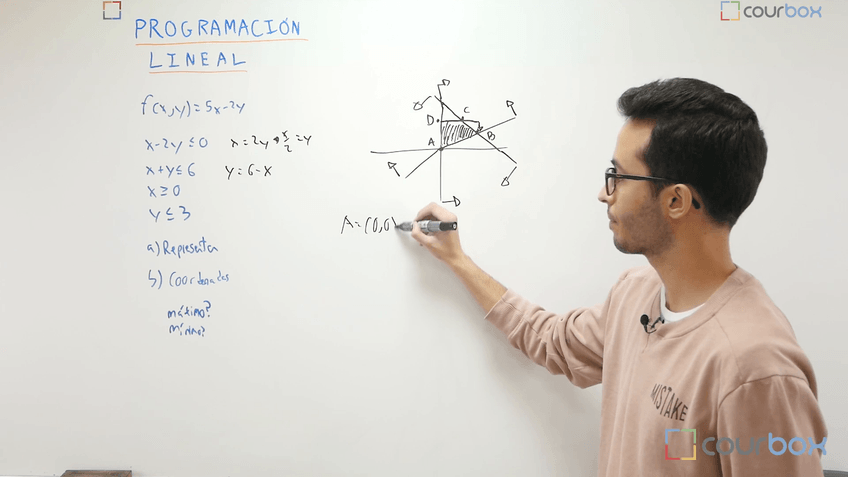 courbox
PROGRAMACIÓN
LINEAL
f(x,y)=5x-2y
x-2y≤0 x=2y → x/2=y
x+y≤6 y=6-x
x≥0
y≤3
a) Representar
b) Coordenadas
máximo?
mínimo?
D C
A B
A=(0,0)
MISTAKE
courbox